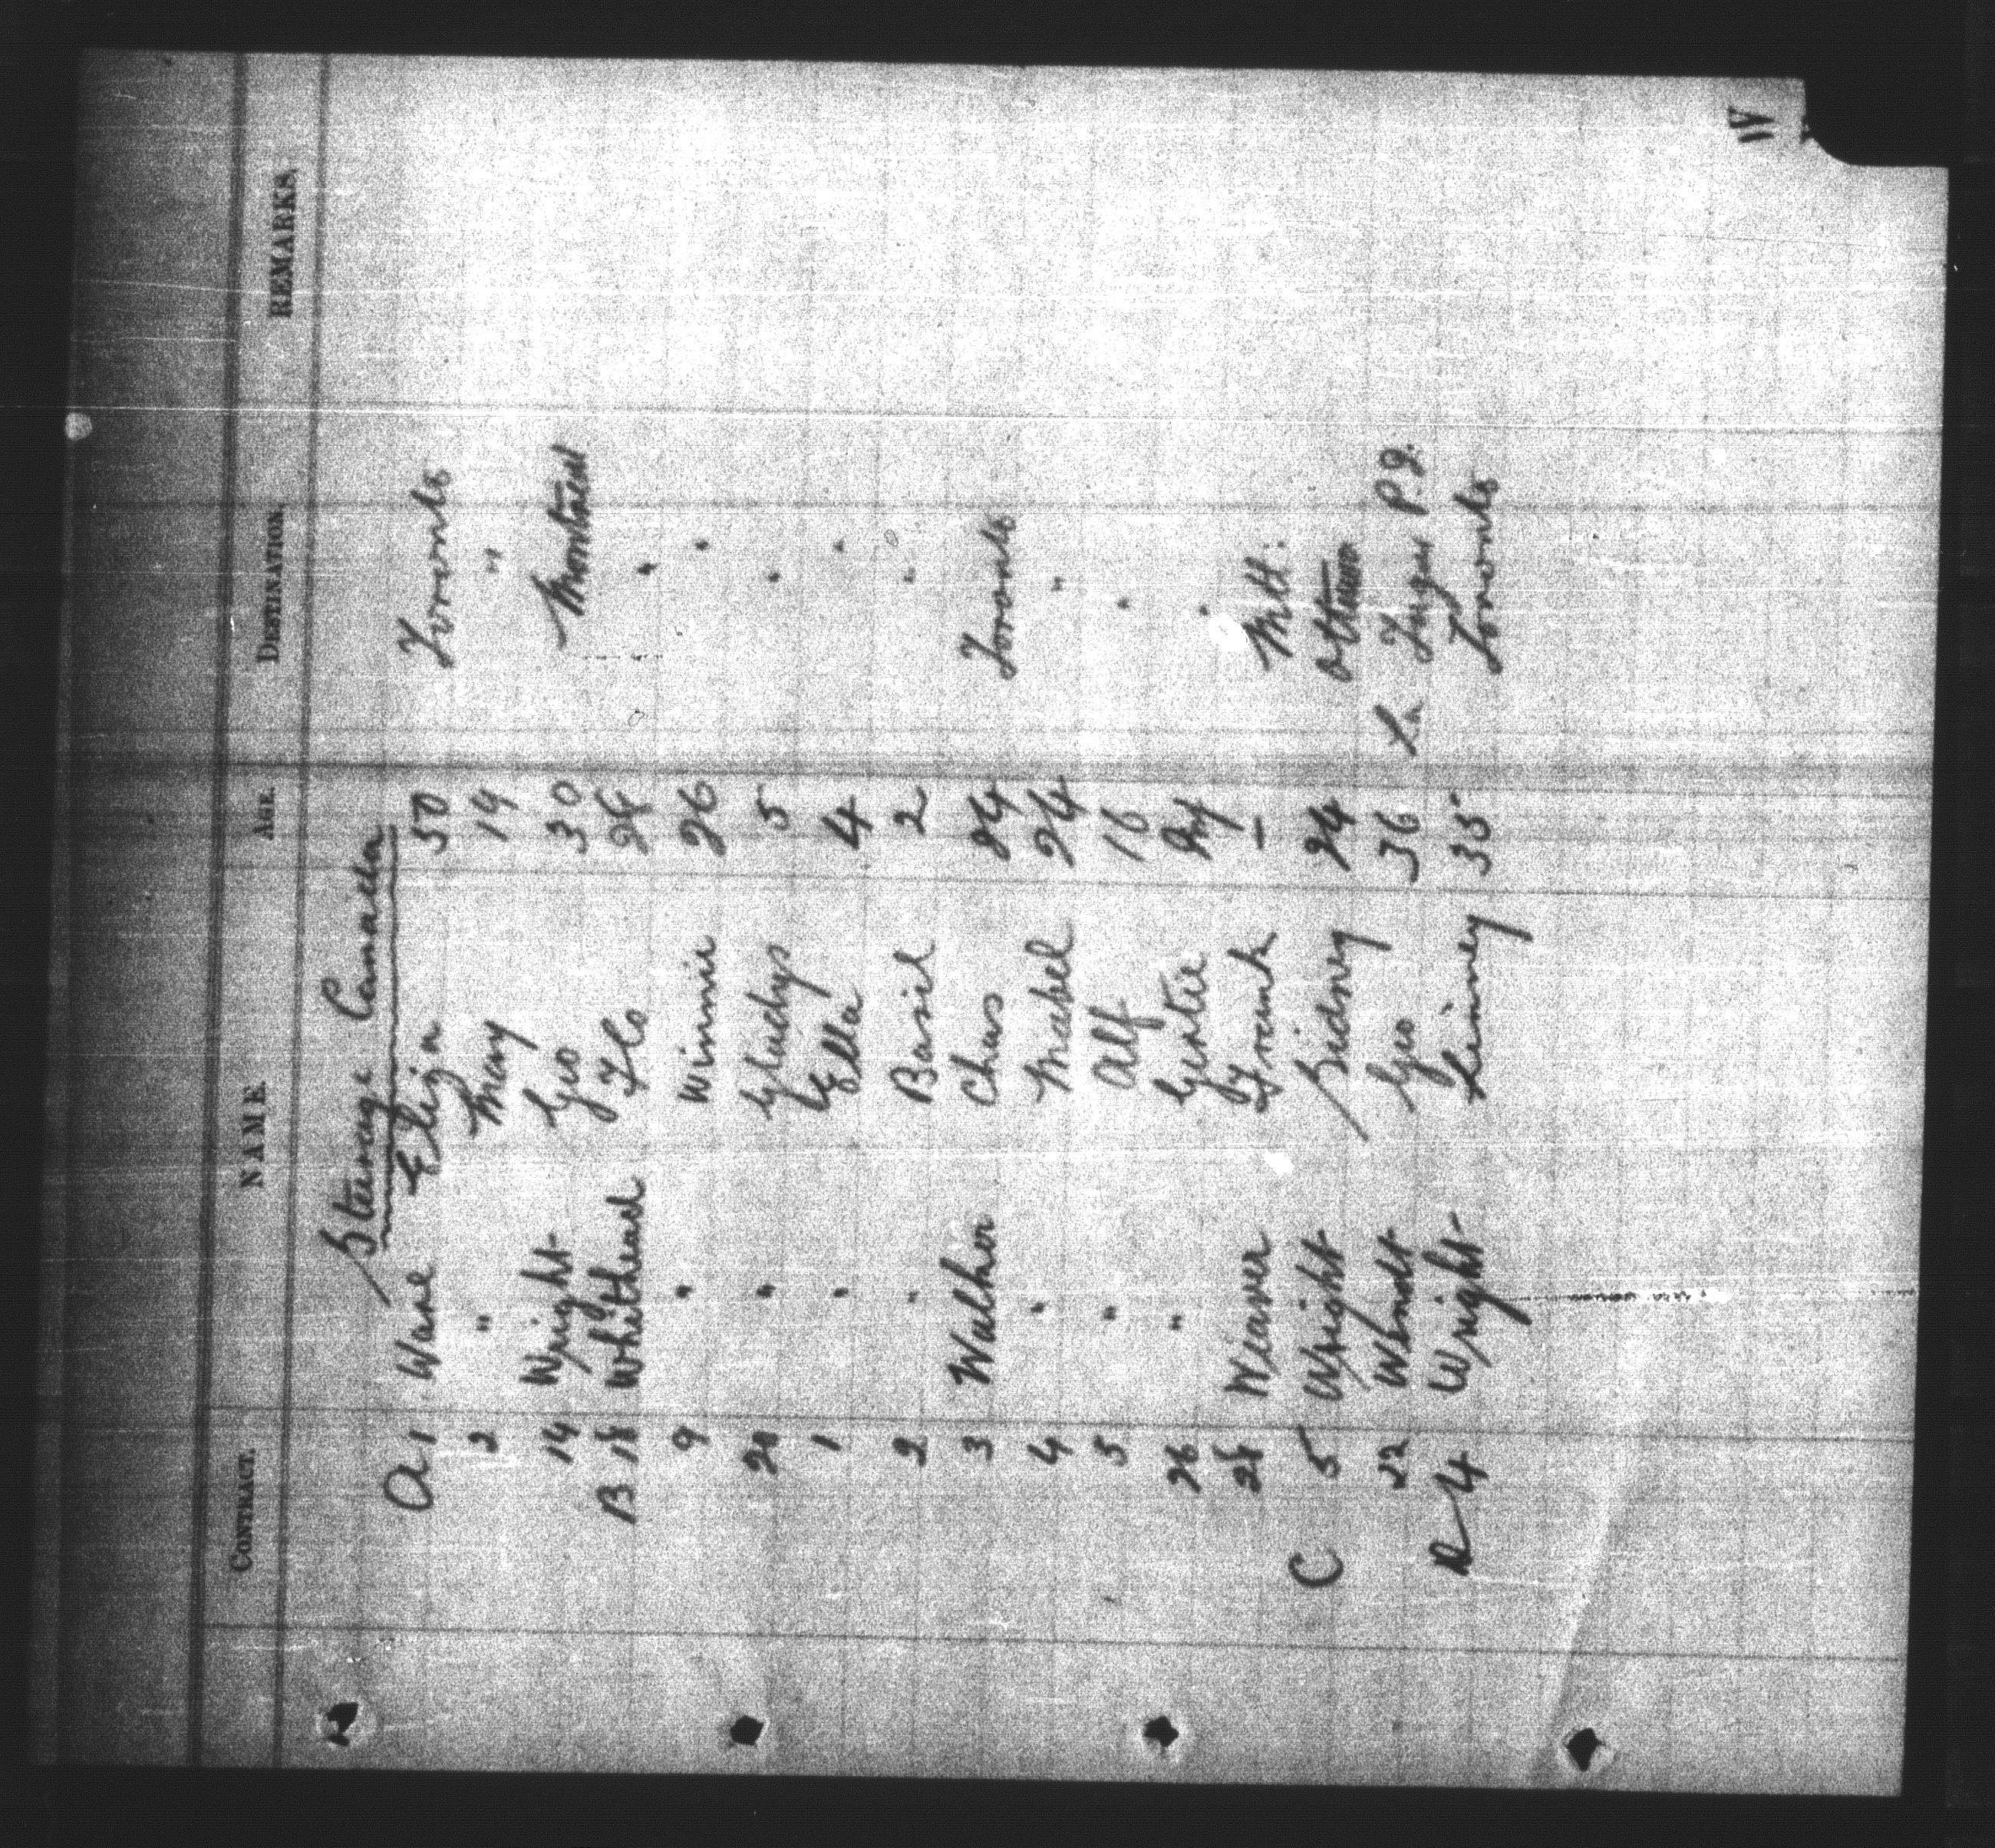 CONTRACT. NAME. AGE. DESTINATION. REMARKS.
W
Steerage Canada
A 1 Wane Eliza 50 Toronto
2 " May 19 "
14 Wright Geo 30 Montreal
B 18 Whitehead Flo 26 "
9 " Winnie 26 "
20 " Gladys 5 "
1 " Ella 4 "
2 " Basil 2 "
3 Walker Chas 24 Toronto
4 " Mabel 24 "
5 " Alf 16 "
26 " Gertie Inf "
28 Weaver Frank — Mtl:
C 5 Wright Sidney 24 Ottawa
22 Wendt Geo 36 La P.Q.
4 Wright 35 Toronto